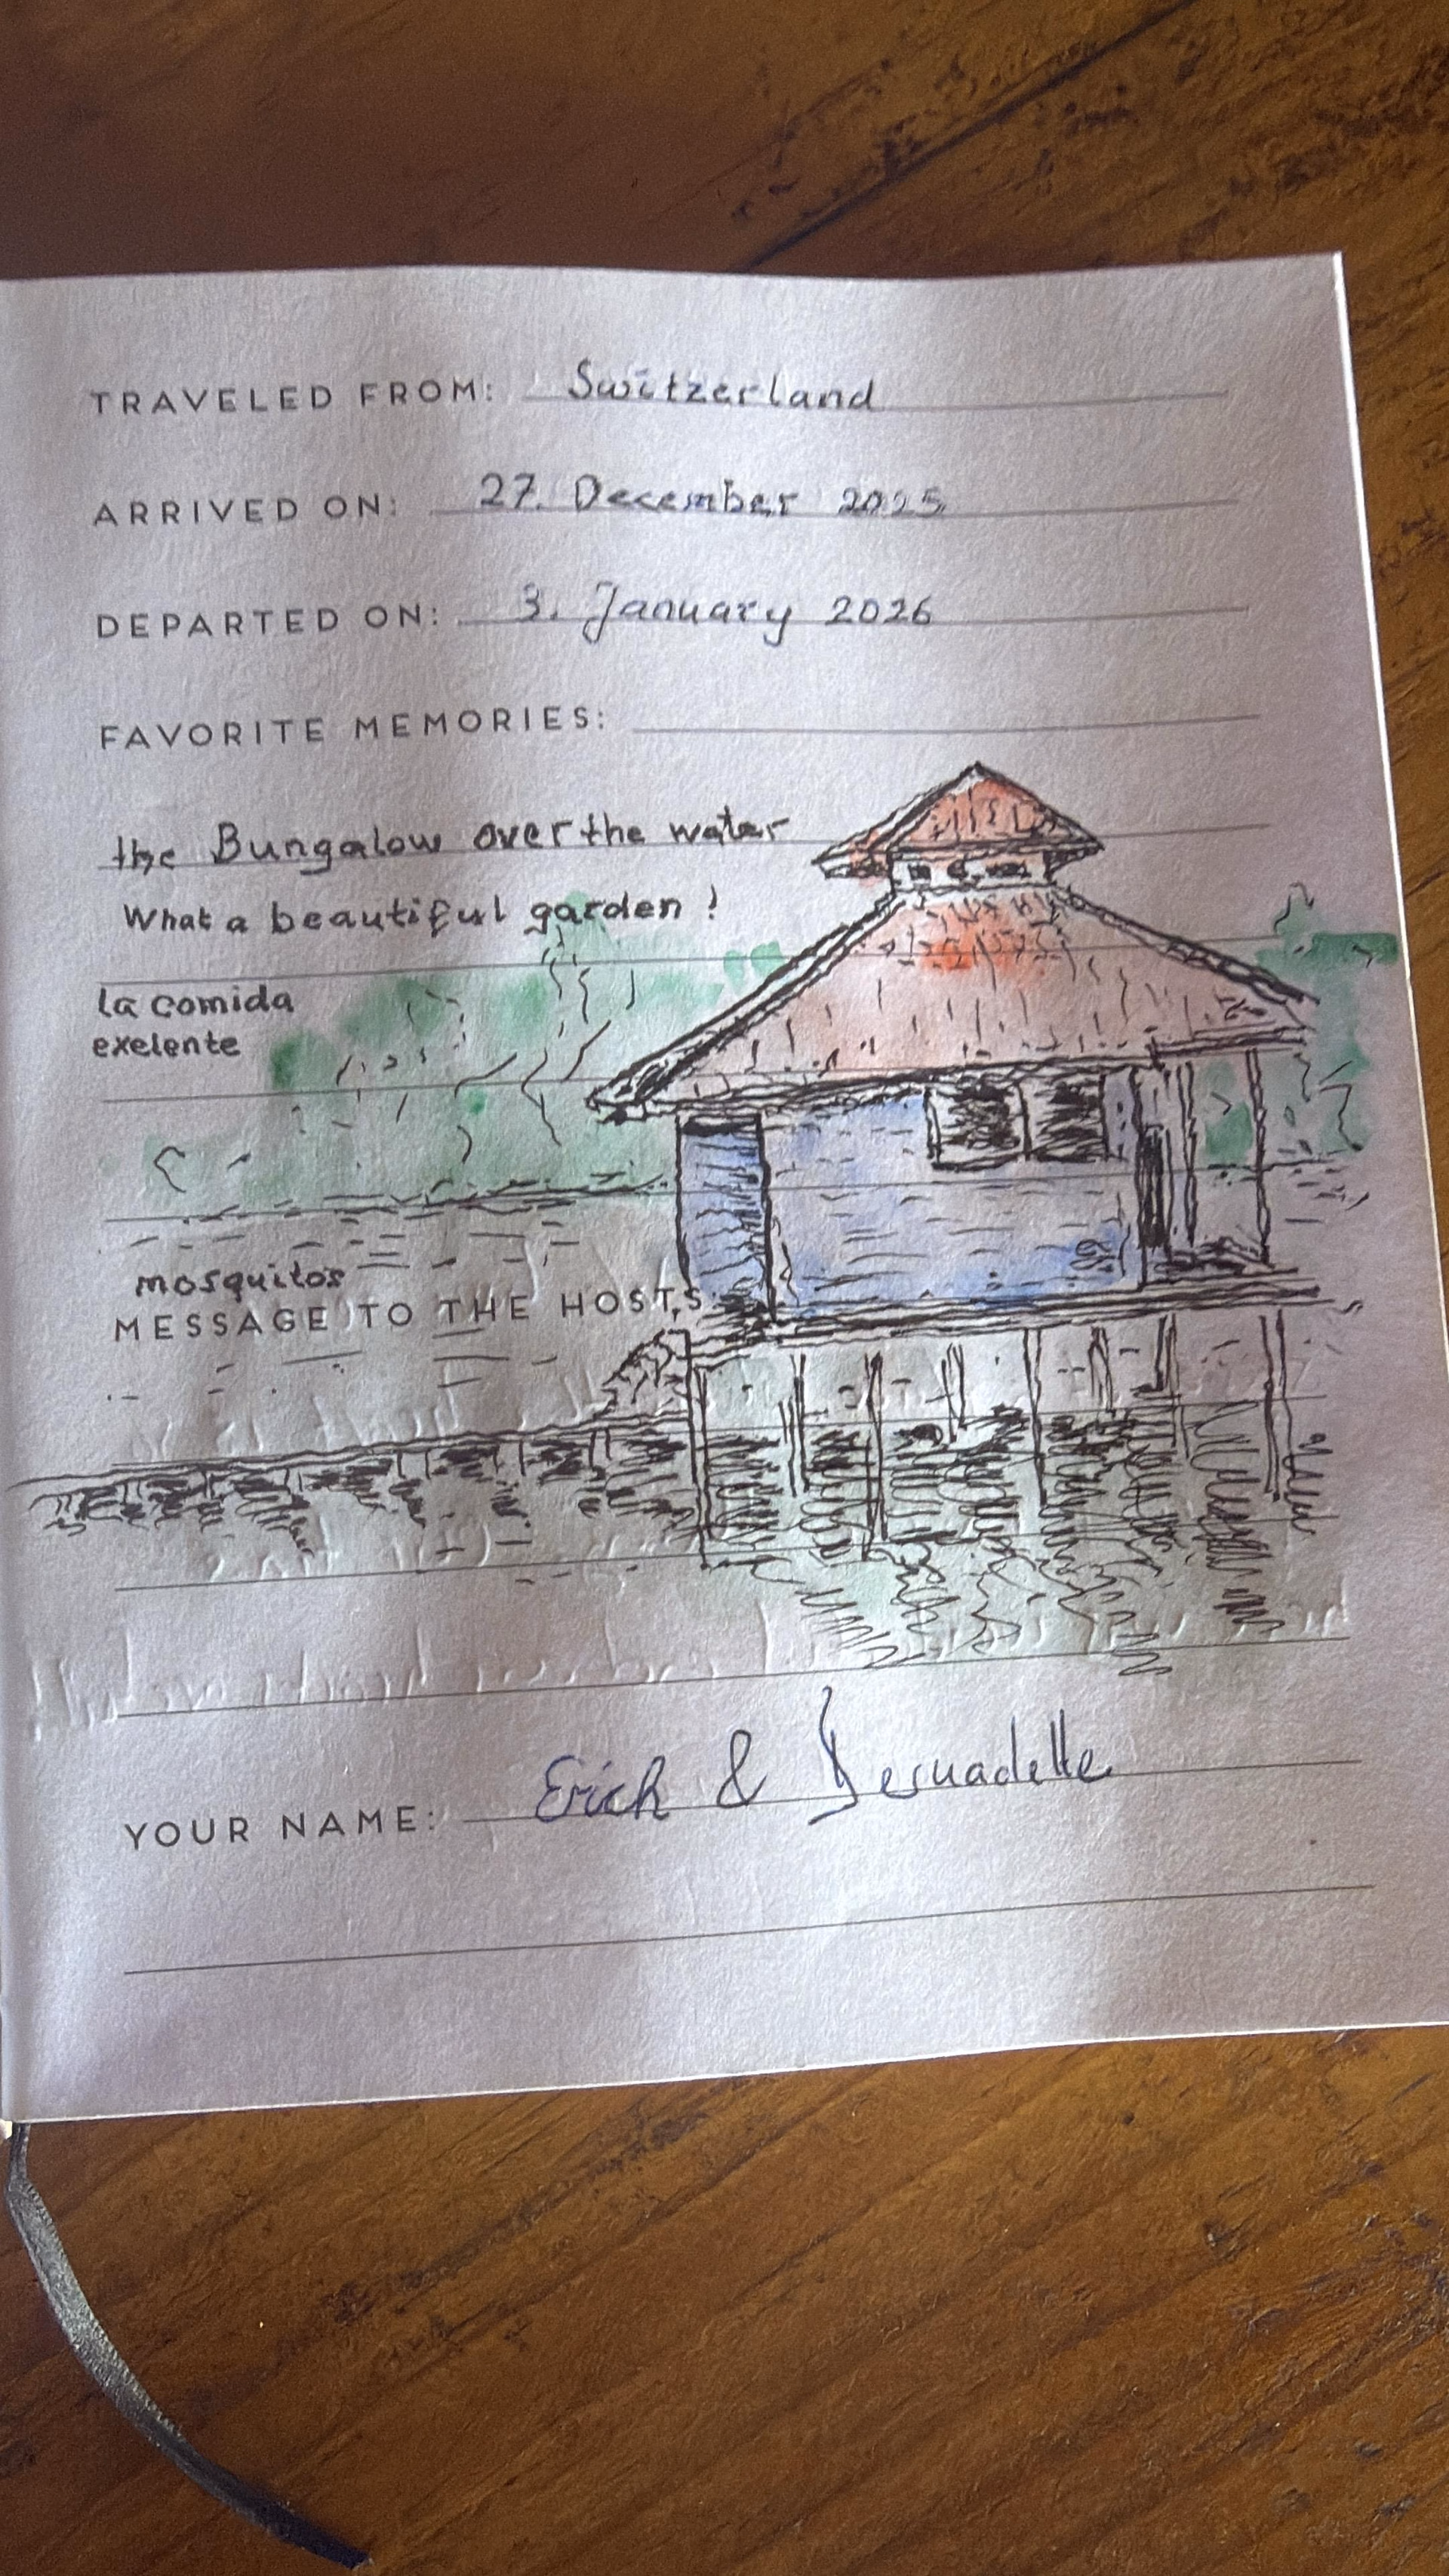 TRAVELED FROM: Switzerland
ARRIVED ON: 27. December 2025
DEPARTED ON: 3. January 2026
FAVORITE MEMORIES:
the Bungalow over the water
What a beautiful garden!
la comida
exelente
mosquitos
MESSAGE TO THE HOSTS:
YOUR NAME: Erich & Bernadette